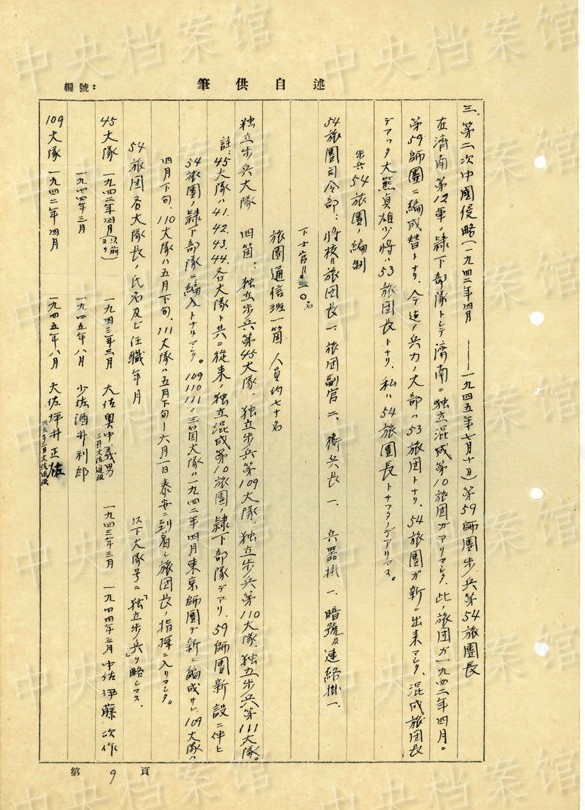 述自供筆
編號:
三、第二次中國侵略(一九四二年四月 —— 一九四五年七月十日)第59師團步兵第54旅團長
在濟南第12軍ノ隷下部隊トシテ濟南ニ独立混成第10旅団ガアリマシタ。此ノ旅団ガ一九四二年四月。
第59師團ニ編成替トナリ今迄ノ兵力ノ大部ハ53旅団トナリ、54旅團ガ新ニ出来マシタ、混成旅団長
デアッタ大熊貞雄少將ハ53旅団長トナリ、私ハ54旅團長トナツタノデアリマス。
步兵54旅團ノ編制
54旅團司令部:將校、旅団長一、旅団副官二、衛兵長一、兵器掛一、暗號及連絡掛一、
下士官兵 30名
旅團通信班一箇 人員約七十名
独立步兵大隊 四箇:独立步兵第45大隊、独立步兵第109大隊、独立步兵第110大隊、独立步兵第111大隊。
註:45大隊ハ41.42.43.44.各大隊ト共ニ從来、独立混成第10旅團ノ隷下部隊デアリ、59師團新設ニ伴ヒ
54旅團ノ隷下部隊ニ編入トナリマシタ。109 110 111ノ三箇大隊ハ一九四二年四月東京師團デ新ニ編成サレ109大隊ハ
四月下旬、110大隊ハ五月下旬、111大隊ハ五月下旬—六月一日泰安ニ到着シ旅団長ノ指揮ニ入リマシタ。
54旅團各大隊長ノ氏名及ビ任職年月 以下大隊号ニ「独立步兵」ヲ略シマス、
45大隊 一九四二年四月 一九四三年三月 大佐 奥中義男 一九四三年三月 一九四四年三月 中佐 伊藤次作
一九四四年三月 一九四五年八月 少佐 酒井利郎
109大隊 一九四二年四月 一九四五年八月 大佐 坪井正雄
第 9 頁
中央档案馆